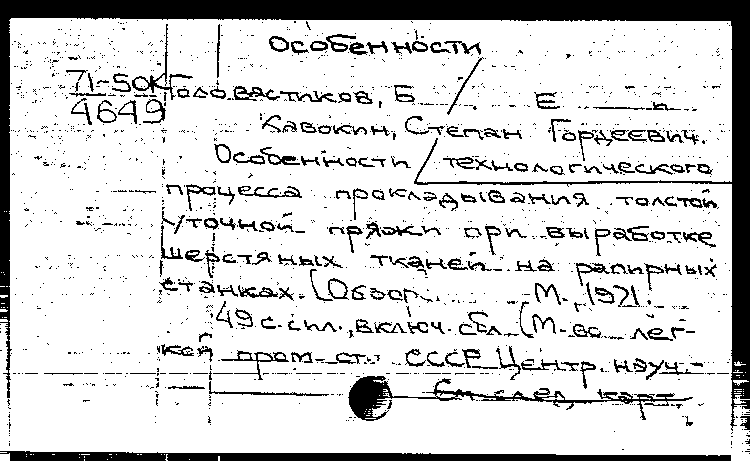 Особенности
71-50К Головастиков, Б Е
4649
Кавокин, Степан Гордеевич.
Особенности технологического
процесса прокладывания толстой
уточной пряжи при выработке
шерстяных тканей на рапирных
станках. [Обзор. М., 1971.
49 с. с ил., включ. обл. (М-во лег-
кой пром-сти СССР. Центр. науч.-
См. след. карт.